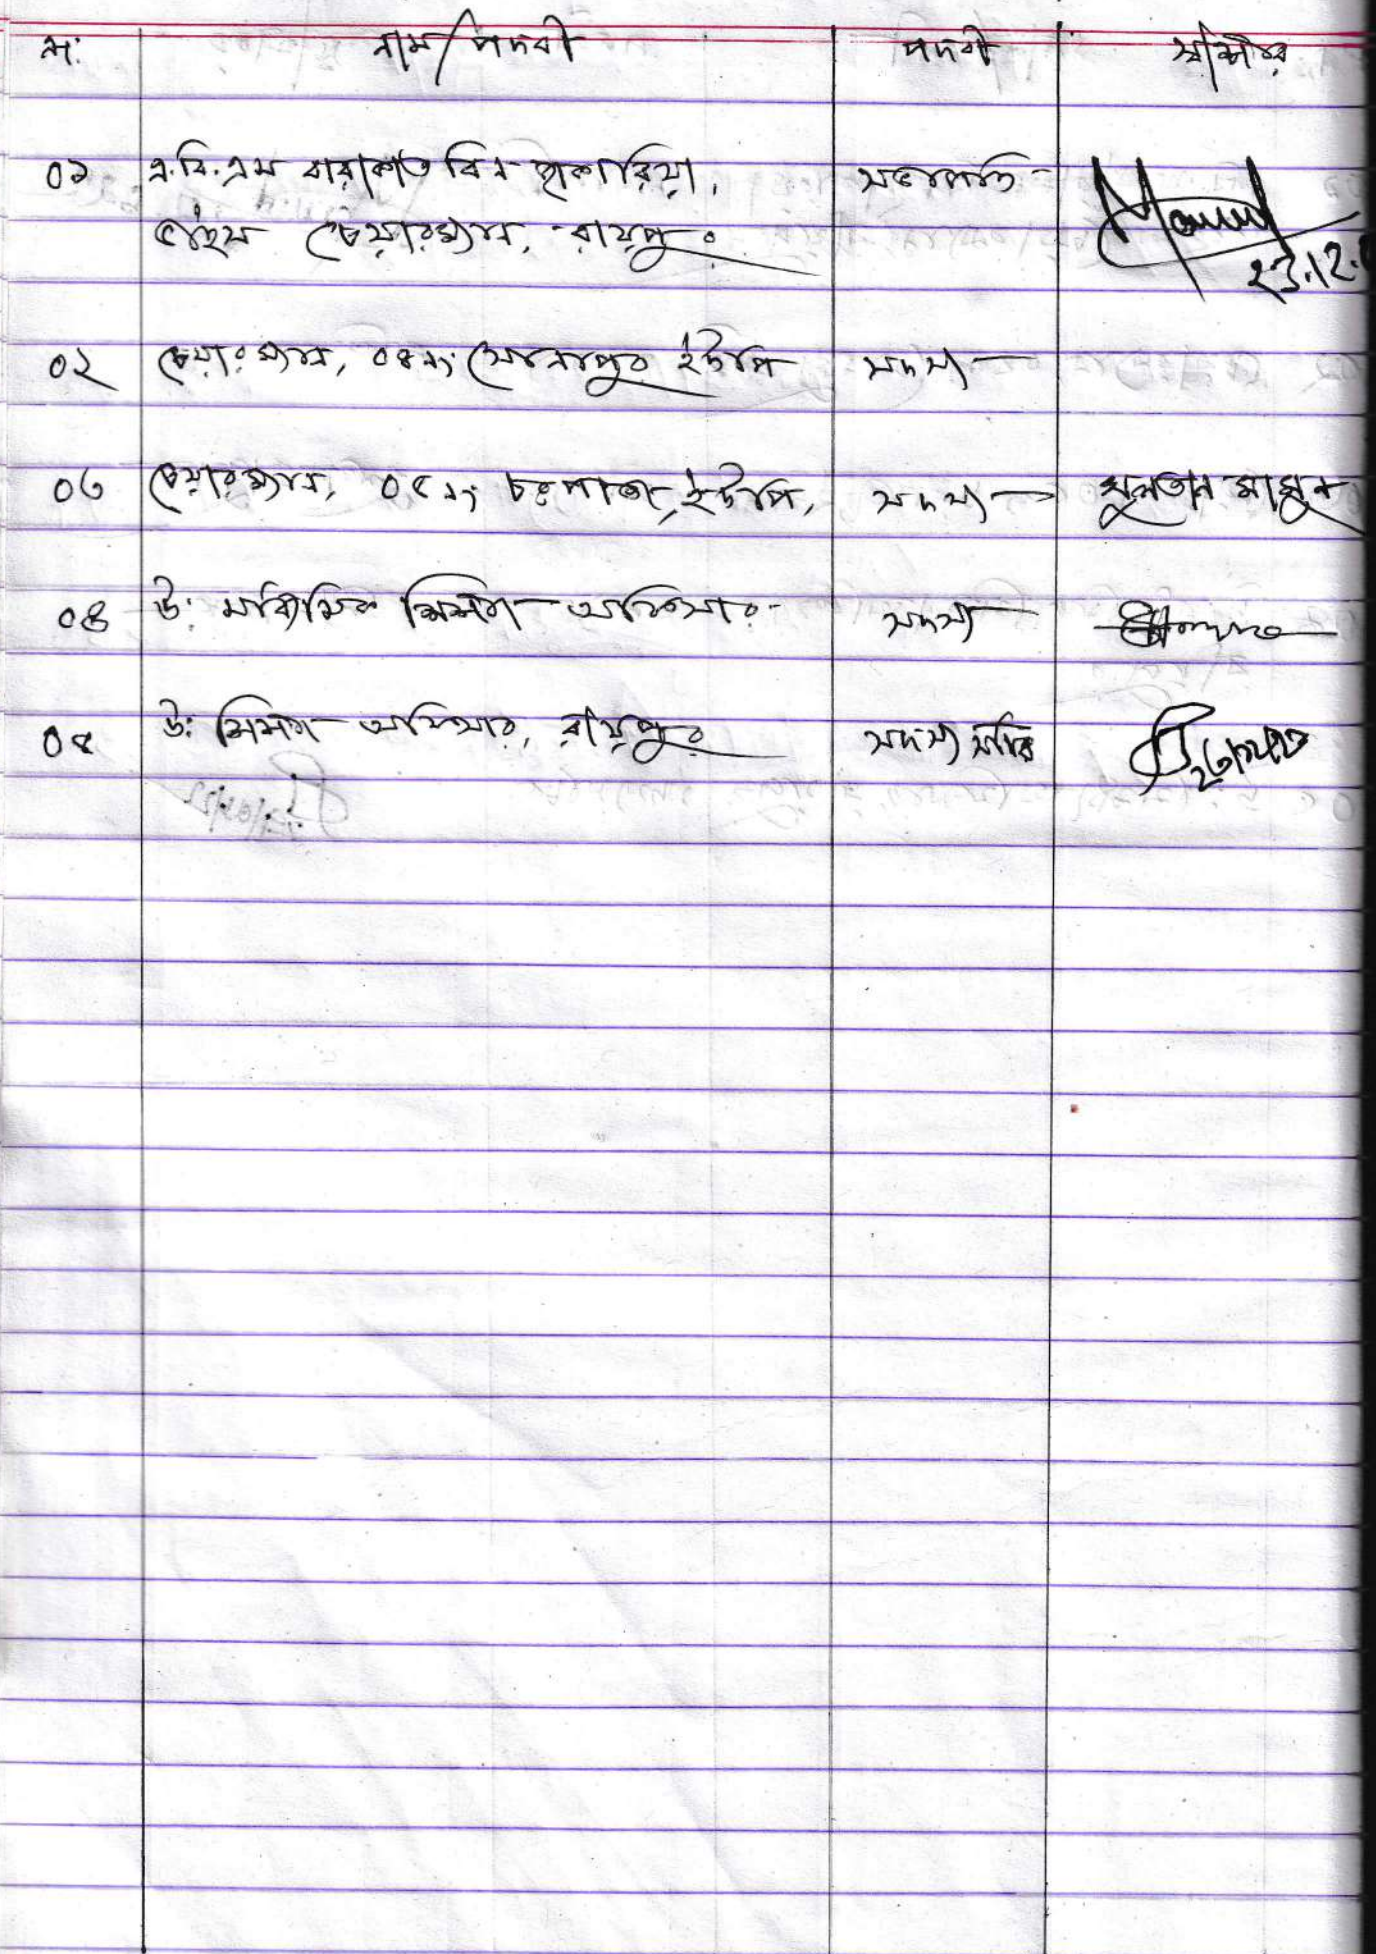 নং নাম/পদবী পদবী স্বাক্ষর
০১ এ.বি.এম মারুফ বিন জাকারিয়া, সভাপতি
ভাইস চেয়ারম্যান, রায়পুর
২3.12.
০২ চেয়ারম্যান, ০৪নং সোনাপুর ইউপি সদস্য
০৩ চেয়ারম্যান, ০৫নং চরপাতা ইউপি, সদস্য সুলতান মামুন
০৪ উ: মাধ্যমিক শিক্ষা অফিসার সদস্য
০৫ উ: শিক্ষা অফিসার, রায়পুর সদস্য সচিব